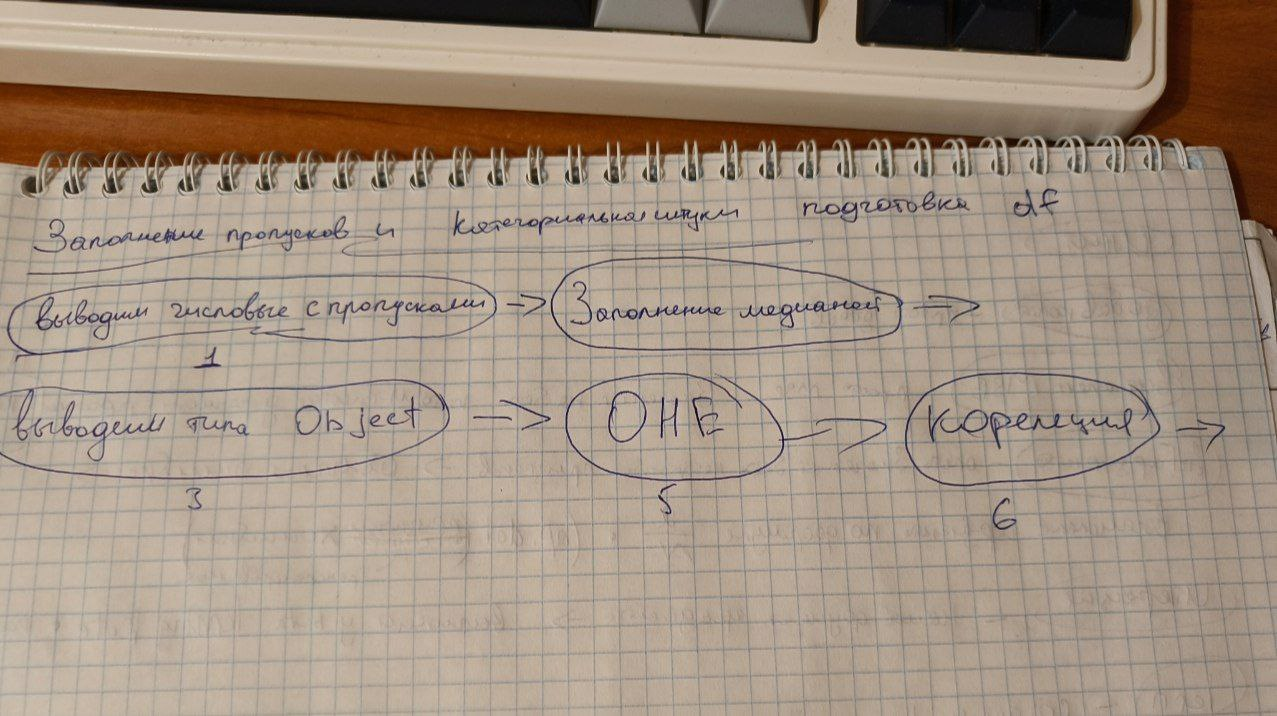 Заполнение пропусков и категориальная штуки подготовка df
выводим числовые с пропусками -> Заполнение медианой =>
1
выводим типа Object => ОНЕ => корелеция ->
3 5 6